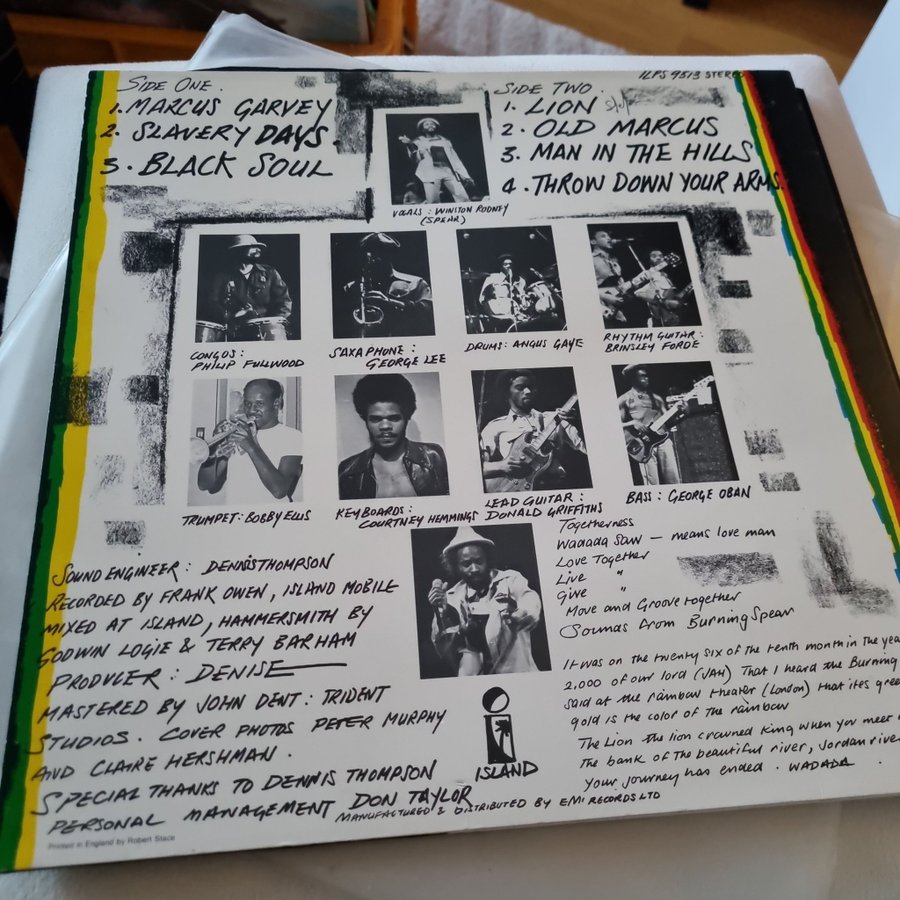 SIDE ONE.
1. MARCUS GARVEY
2. SLAVERY DAYS.
3. BLACK SOUL
ILPS 9513 STEREO
SIDE TWO.
1. LION
2. OLD MARCUS
3. MAN IN THE HILLS
4. THROW DOWN YOUR ARMS.
VOCALS: WINSTON RODNEY
(SPEAR)
CONGOS:
PHILIP FULLWOOD
SAXAPHONE:
GEORGE LEE
DRUMS: ANGUS GAYE
RHYTHM GUITAR:
BRINSLEY FORDE
TRUMPET: BOBBY ELLIS
KEYBOARDS:
COURTNEY HEMMINGS
LEAD GUITAR:
DONALD GRIFFITHS
BASS: GEORGE OBAN
SOUND ENGINEER: DENNIS THOMPSON
RECORDED BY FRANK OWEN, ISLAND MOBILE
MIXED AT ISLAND, HAMMERSMITH BY
GODWIN LOGIE & TERRY BARHAM
PRODUCER: DENISE
MASTERED BY JOHN DENT: TRIDENT
STUDIOS. COVER PHOTOS PETER MURPHY
AND CLAIRE HERSHMAN.
SPECIAL THANKS TO DENNIS THOMPSON
PERSONAL MANAGEMENT DON TAYLOR
Printed in England by Robert Stace
ISLAND
MANUFACTURED & DISTRIBUTED BY EMI RECORDS LTD
Togetherness
Wadada Saw - means love man
Love Together
Live "
Give "
Move and Groove together
Sounds from Burning Spear
It was on the twenty six of the tenth month in the year
2,000 of our lord (JAH) That I heard the Burning
said at the rainbow theater (London) that ites
gold is the color of the rainbow
The Lion the lion crowned King when you meet
The bank of the beautiful river, Jordan river
Your journey has ended. WADADA.